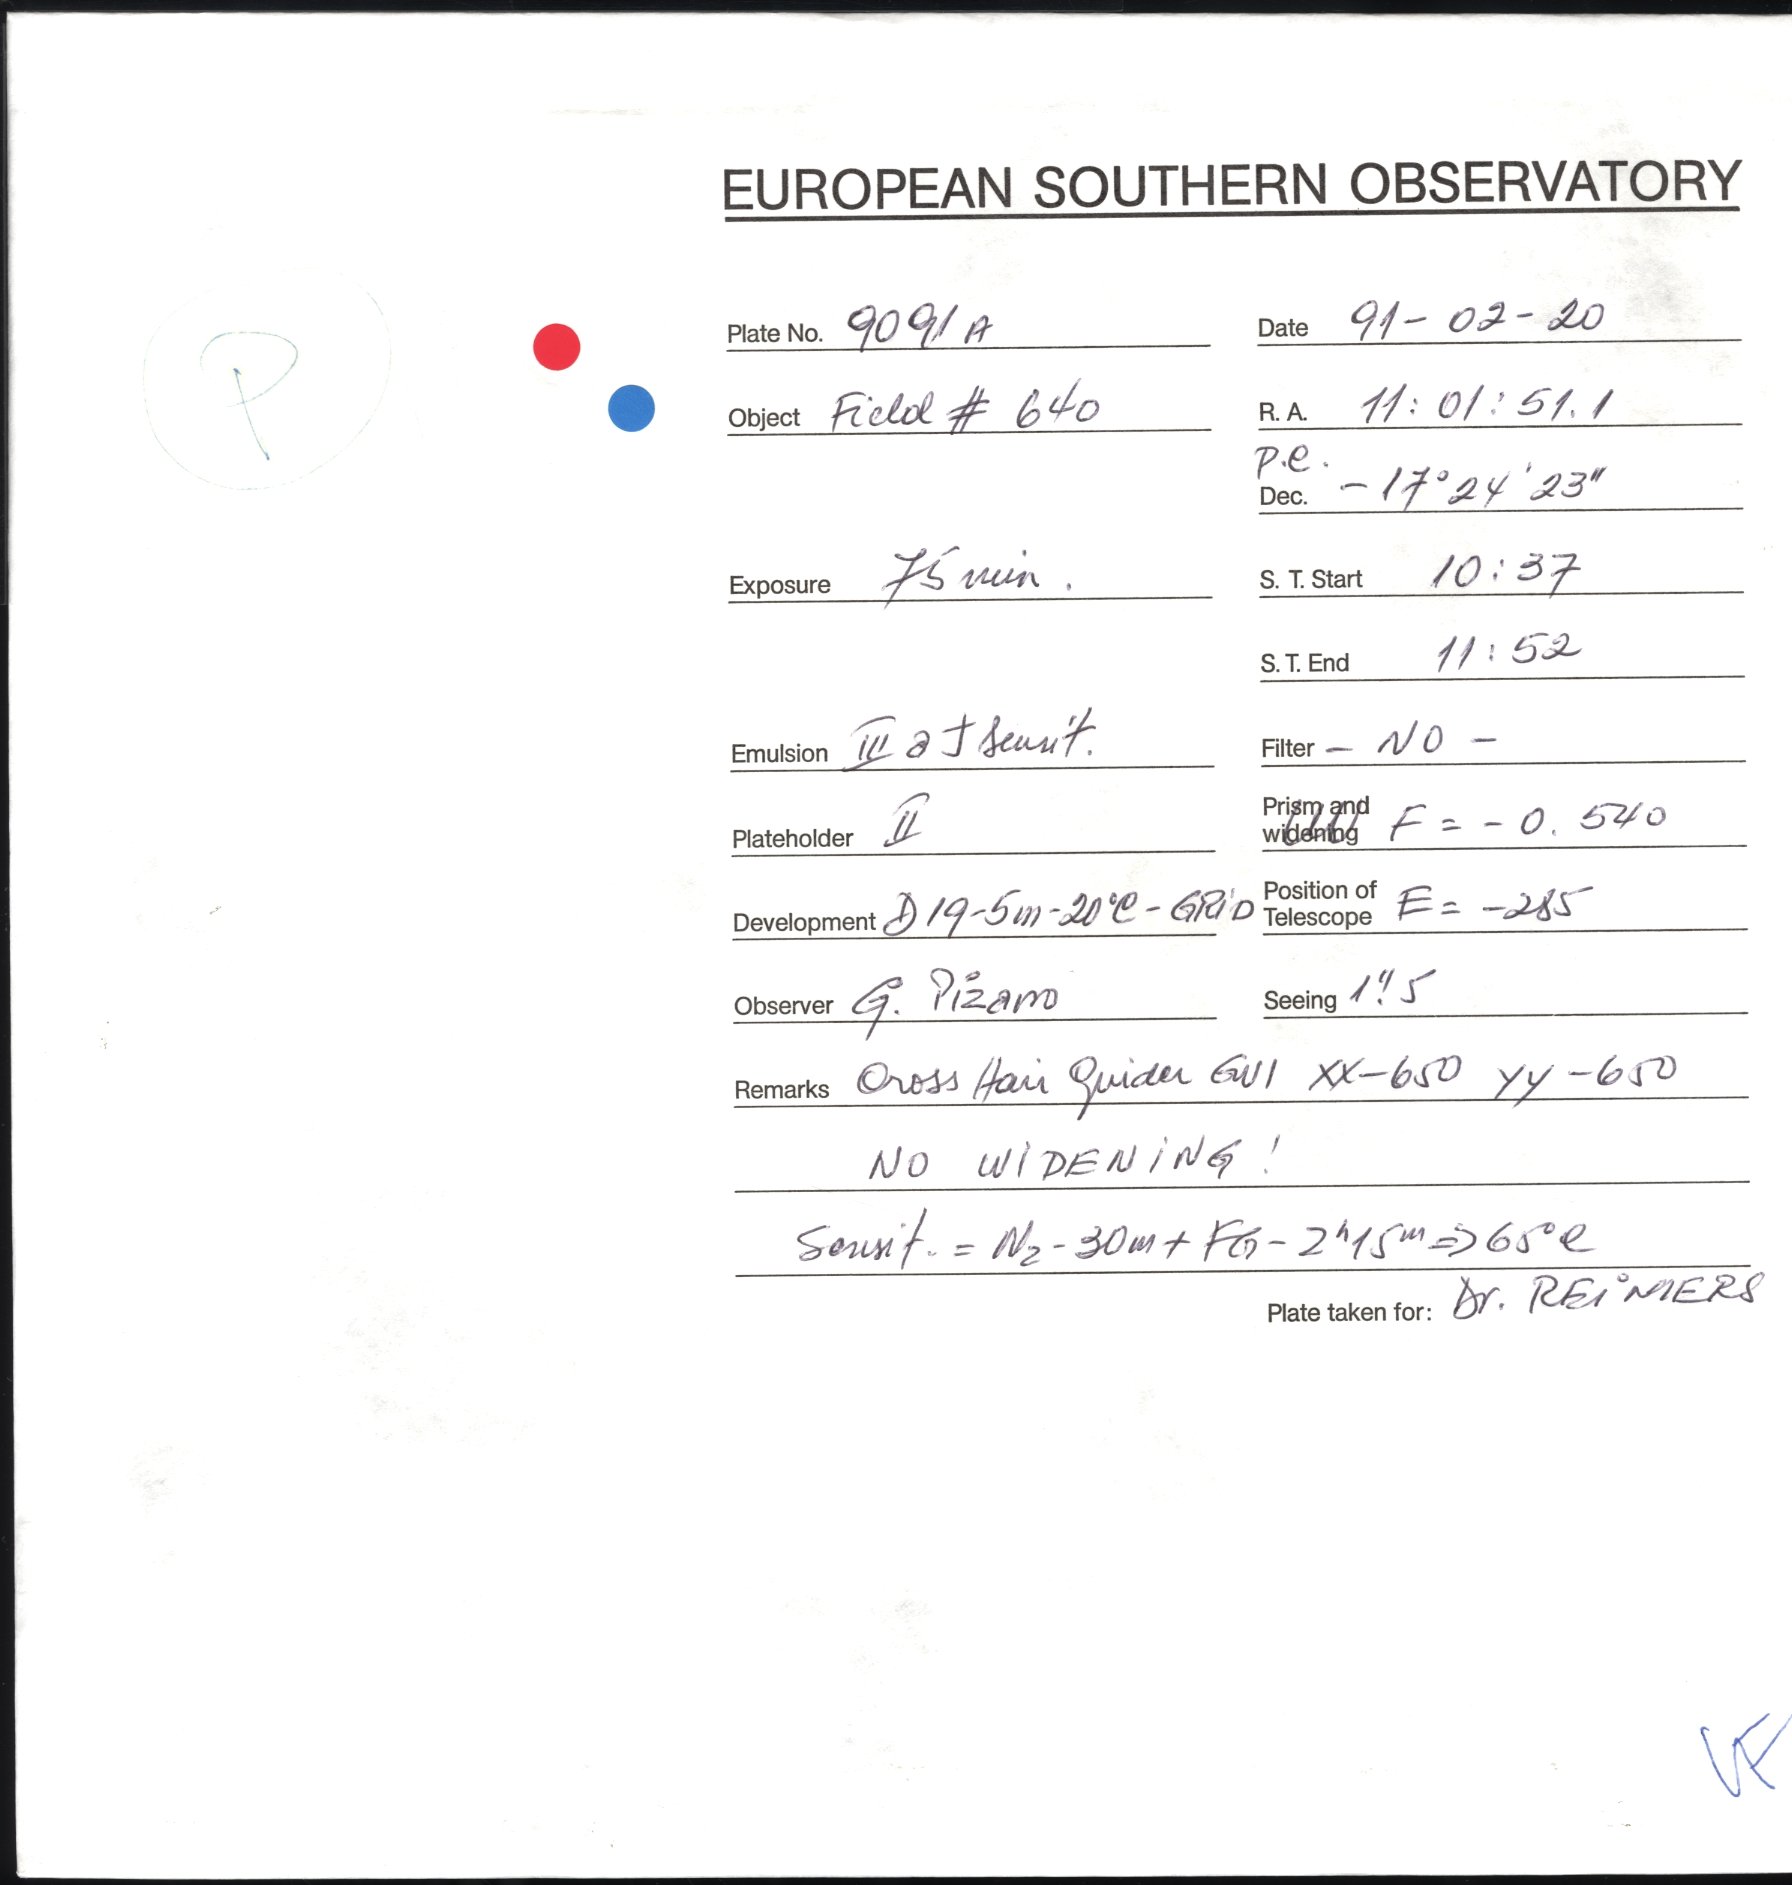 EUROPEAN SOUTHERN OBSERVATORY
P
Plate No. 9091 A
Date 91-02-20
Object Field # 640
R. A. 11:01:51.1
p.e.
Dec. -17°24'23"
Exposure 75 min.
S. T. Start 10:37
S. T. End 11:52
Emulsion III a J Sensit.
Filter - NO -
Plateholder II
Prism and
widening F = -0.540
Development D19-5m-20°C-GRiD
Position of
Telescope E = -285
Observer G. Pizarro
Seeing 1"5
Remarks Cross Hair Guider GW1 XX-650 YY-650
NO WIDENING!
Sensit. = N2-30m + FG-2h15m => 65°C
Plate taken for: Dr. REiMERS